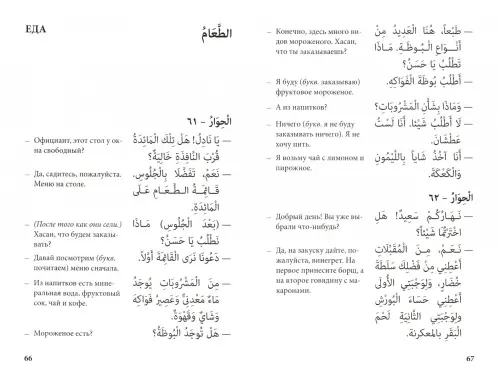 ЕДА
الطَّعَامُ
الْحِوَارُ – ٦١
– Официант, этот стол у ок-
на свободный?
— يَا نَادِلُ! هَلْ تِلْكَ الْمَائِدَةُ
قُرْبَ النَّافِذَةِ خَالِيَةٌ؟
– Да, садитесь, пожалуйста.
Меню на столе.
— نَعَمْ، تَفَضَّلَا بِالْجُلُوسِ.
قَائِمَةُ الطَّعَامِ عَلَى
الْمَائِدَةِ.
– (После того как они сели.)
Хасан, что будем заказы-
вать?
— (بَعْدَ الْجُلُوسِ) مَاذَا
نَطْلُبُ يَا حَسَنُ؟
– Давай посмотрим (букв.
почитаем) меню сначала.
— دَعُونَا نَرَى الْقَائِمَةَ أَوَّلاً.
– Из напитков есть мине-
ральная вода, фруктовый
сок, чай и кофе.
— مِنَ الْمَشْرُوبَاتِ يُوجَدُ
مَاءٌ مَعْدَنِيٌّ وَعَصِيرُ فَوَاكِهَ
وَشَايٌ وَقَهْوَةٌ.
– Мороженое есть?
— هَلْ تُوجَدُ الْبُوظَةُ؟
66
– Конечно, здесь много ви-
дов мороженого. Хасан,
что ты заказываешь?
— طَبْعاً، هُنَا الْعَدِيدُ مِنْ
أَنْوَاعِ الْبُوظَةِ. مَاذَا
تَطْلُبُ يَا حَسَنُ؟
– Я буду (букв. заказываю)
фруктовое мороженое.
— أَطْلُبُ بُوظَةَ الْفَوَاكِهِ.
– А из напитков?
— وَمَاذَا بِشَأْنِ الْمَشْرُوبَاتِ؟
– Ничего (букв. я не буду
заказывать ничего). Я не
хочу пить.
— لَا أَطْلُبُ شَيْئًا. أَنَا لَسْتُ
عَطْشَانَ.
– Я возьму чай с лимоном и
пирожное.
— أَنَا آخُذُ شَاياً بِاللَّيْمُونِ
وَالْكَعْكَةَ.
الْحِوَارُ – ٦٢
– Добрый день! Вы уже вы-
брали что-нибудь?
— نَهَارُكُمْ سَعِيدٌ! هَلِ
اخْتَرْتُمَا شَيْئاً؟
– Да, на закуску дайте, по-
жалуйста, винегрет. На
первое принесите борщ, а
на второе говядину с ма-
каронами.
— نَعَمْ، مِنَ الْمُقَبِّلَاتِ
أَعْطِنِي مِنْ فَضْلِكَ سَلَطَةَ
خُضَارٍ، وَلِوَجْبَتِي الْأُولَى
أَعْطِنِي حَسَاءَ الْبُورْشِ
وَلِوَجْبَتِي الثَّانِيَةِ لَحْمَ
الْبَقَرِ بِالْمعكرنة.
67